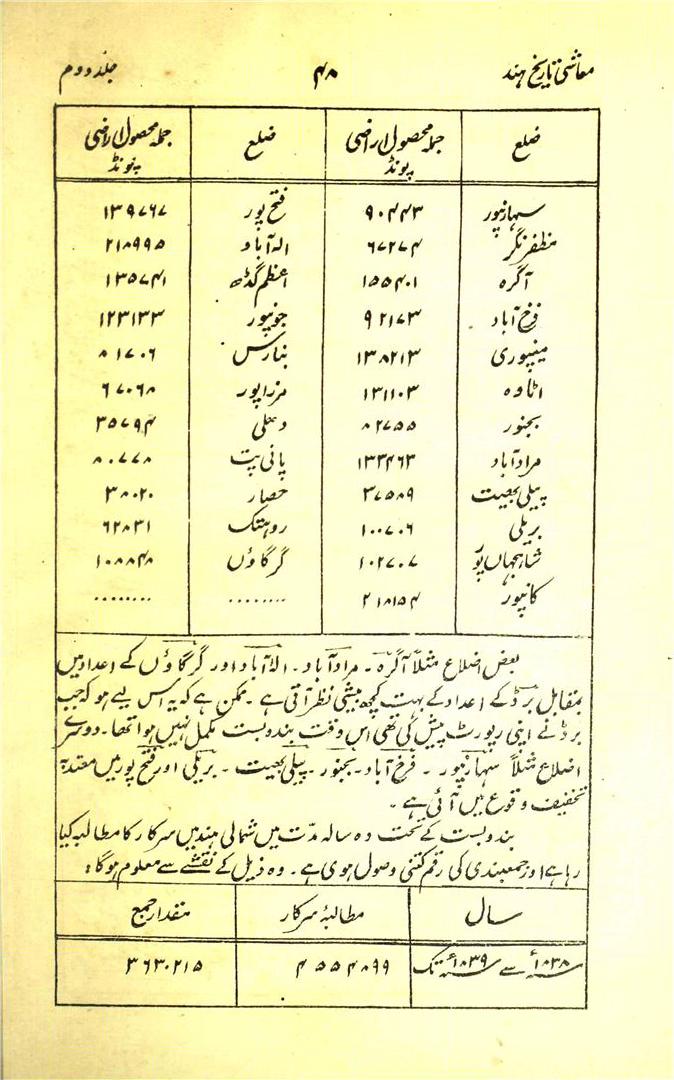 معاشی تاریخ ہند ۴۸ جلد دوم
ضلع جملہ محصول اراضی پونڈ ضلع جملہ محصول اراضی پونڈ
سہارنپور ۹۰۴۴۳ فتح پور ۱۳۹۷۶۷
مظفرنگر ۶۷۲۷۴ الہ آباد ۲۱۸۹۹۵
آگرہ ۱۵۵۴۰۱ اعظم گڈھ ۱۳۵۷۴۱
فرخ آباد ۹۲۱۷۳ جونپور ۱۲۳۱۳۳
مینپوری ۱۳۸۲۱۳ بنارس ۸۱۷۰۶
اٹاوہ ۱۳۱۱۰۳ مرزاپور ۶۷۰۶۸
بجنور ۸۲۷۵۵ دہلی ۳۵۷۹۴
مرادآباد ۱۳۳۴۶۳ پانی پت ۸۰۷۷۸
پیلی بھیت ۳۷۵۸۹ حصار ۳۸۰۲۰
بریلی ۱۰۰۷۰۶ روہتک ۶۲۸۳۱
شاہجہاں پور ۱۰۲۷۰۷ گرگاؤں ۱۰۸۸۴۸
کانپور ۲۱۸۱۵۴ ........ ........
بعض اضلاع مثلاً آگرہ ۔ مرادآباد ۔ الہ آباد اور گرگاؤں کے اعداد میں
بمقابل برڈ کے اعداد کے بہت کچھ بیشی نظر آتی ہے ۔ ممکن ہے کہ یہ اس لیے ہو کہ جب
برڈ نے اپنی رپورٹ پیش کی تھی اس وقت بندوبست مکمل نہیں ہوا تھا ۔ دوسرے
اضلاع مثلاً سہارنپور ۔ فرخ آباد ۔ بجنور ۔ پیلی بھیت ۔ بریلی اور فتح پور میں معتدبہ
تخفیف وقوع میں آئی ہے ۔
بندوبست کے تحت دہ سالہ مدت میں شمالی ہند میں سرکار کا مطالبہ کیا
رہا ہے اور جمعبندی کی رقم کتنی وصول ہوی ہے ۔ وہ ذیل کے نقشے سے معلوم ہوگا :
سال مطالبۂ سرکار مقدار جمع
۱۸۳۸ء سے ۱۸۳۹ء تک ۴۵۵۴۸۹۹ ۳۶۳۰۲۱۵